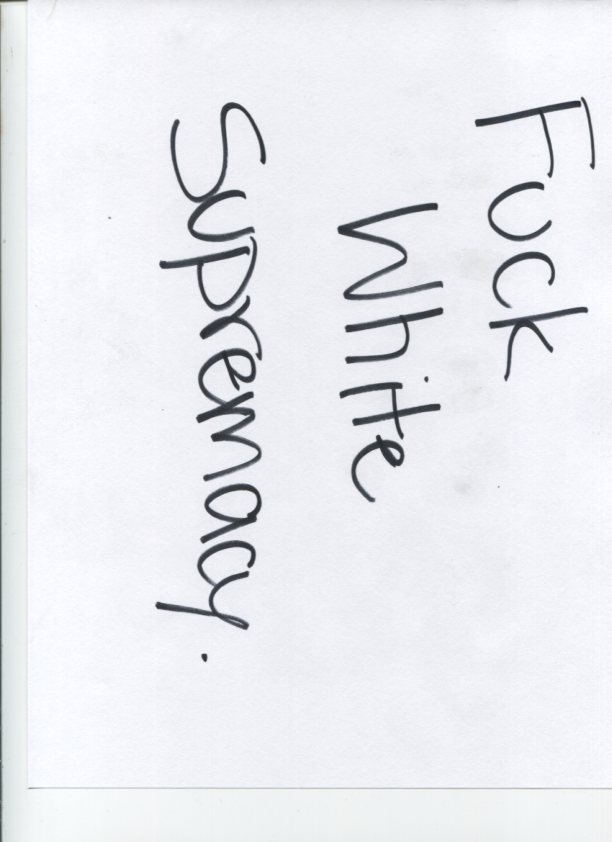 Fuck
White
Supremacy.